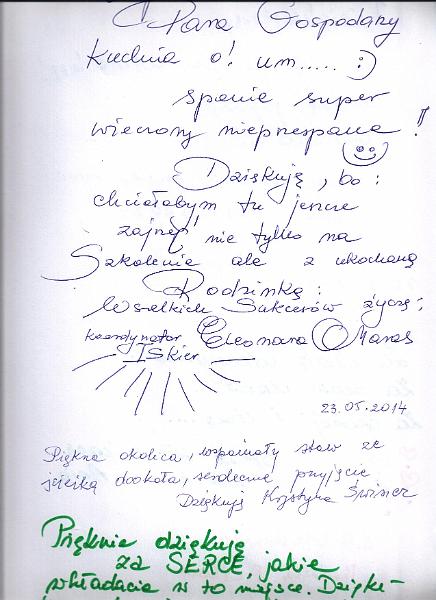 Pana Gospodarzy
Kuchnia o! um..... :)
spanie super
wieczory nieprzespane!
Dziękuję, bo:
chciałabym tu jeszcze
zajrzeć nie tylko na
Szkolenie ale z ukochaną
Rodzinką:
Wszelkich Sukcesów życzę,
koordynator Eleonora
ISKIER
23.05.2014
Piękna okolica, wspaniały staw ze
ścieżką dookoła, serdeczne przyjęcie
Dziękuję Krystyna
Pięknie dziękuję
za SERCE, jakie
wkładacie w to miejsce. Dzięku-